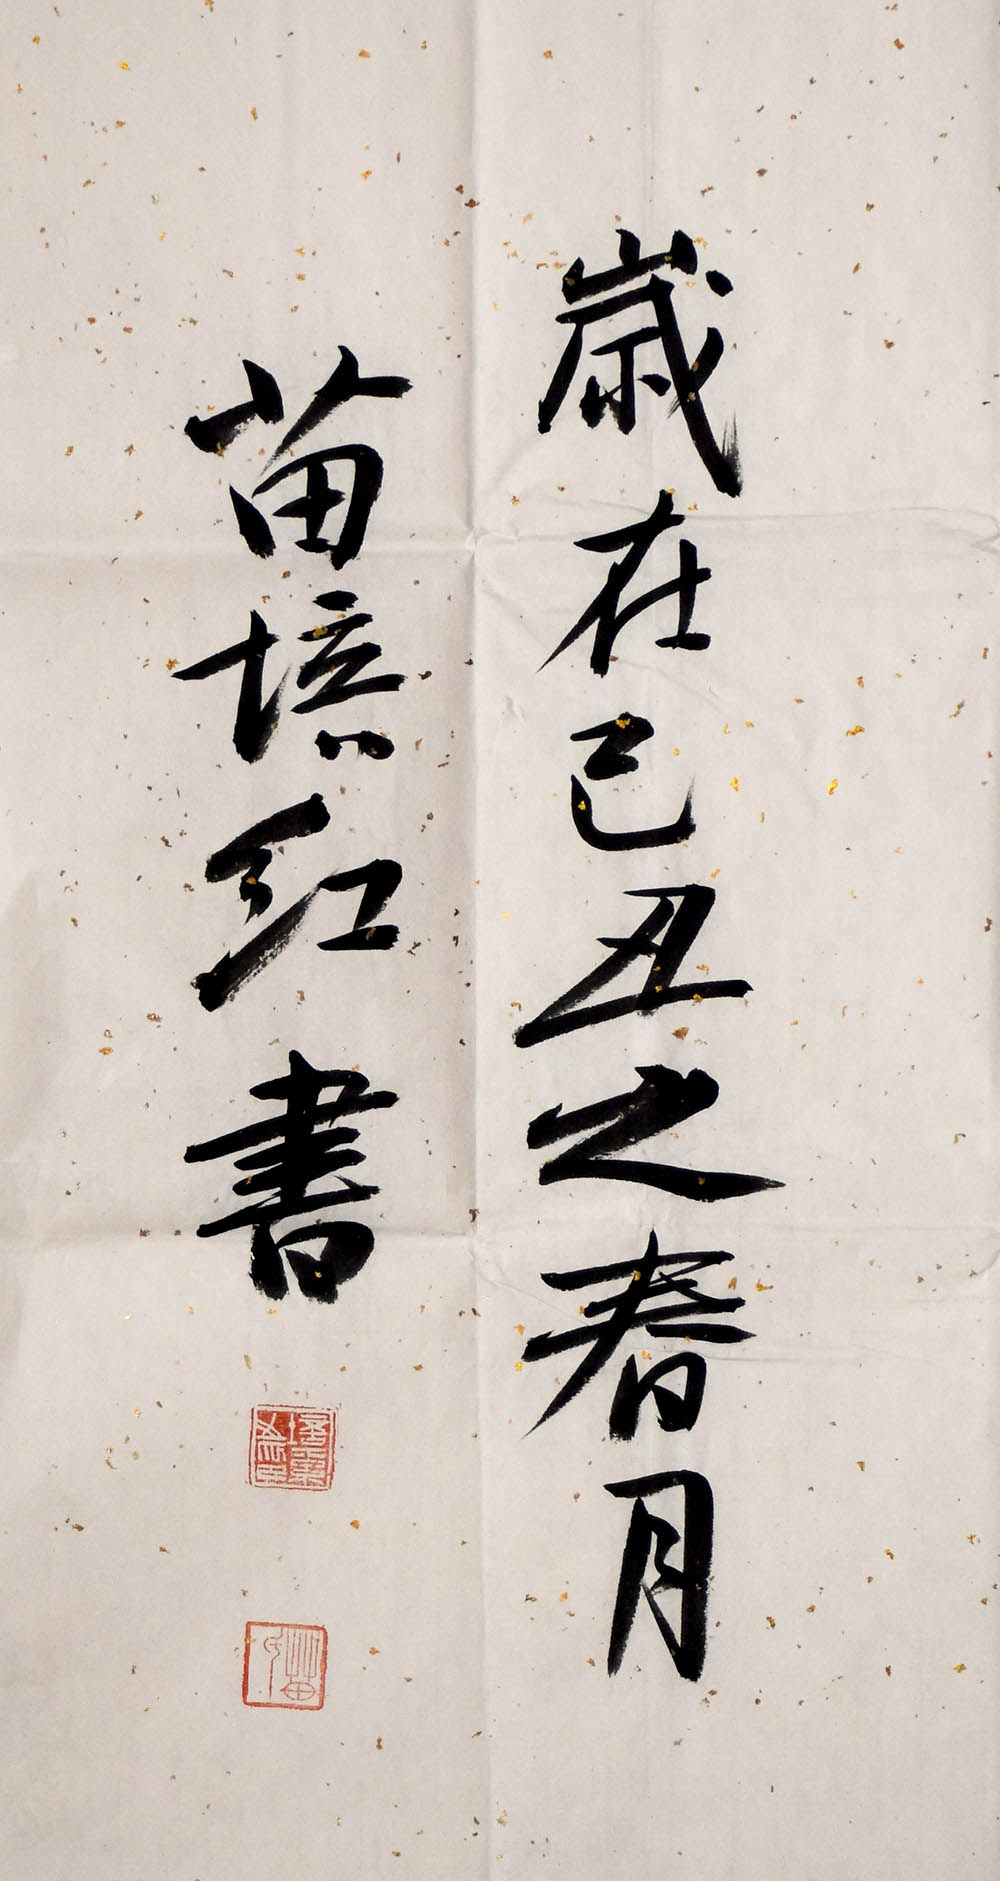 歲在己丑之春月
苗培红書